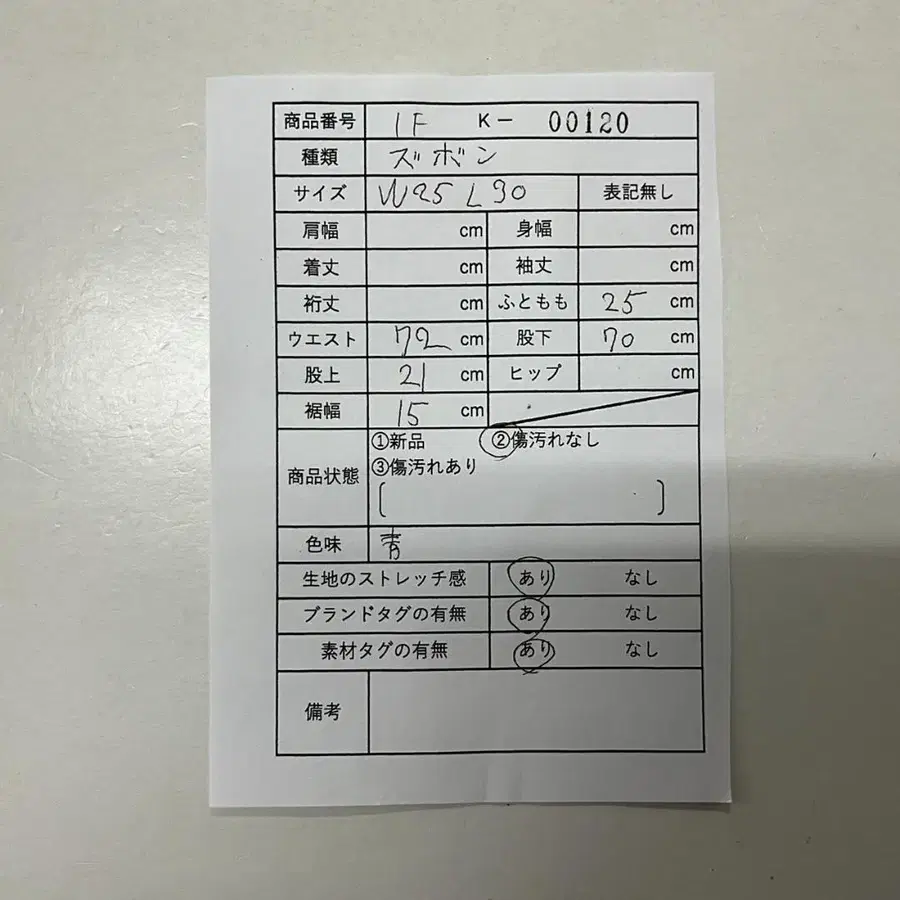 商品番号 1F K- 00120
種類 ズボン
サイズ W25 L30 表記無し
肩幅 cm 身幅 cm
着丈 cm 袖丈 cm
裄丈 cm ふともも 25 cm
ウエスト 72 cm 股下 70 cm
股上 21 cm ヒップ cm
裾幅 15 cm
商品状態 ①新品 ②傷汚れなし
③傷汚れあり
[ ]
色味 青
生地のストレッチ感 あり なし
ブランドタグの有無 あり なし
素材タグの有無 あり なし
備考